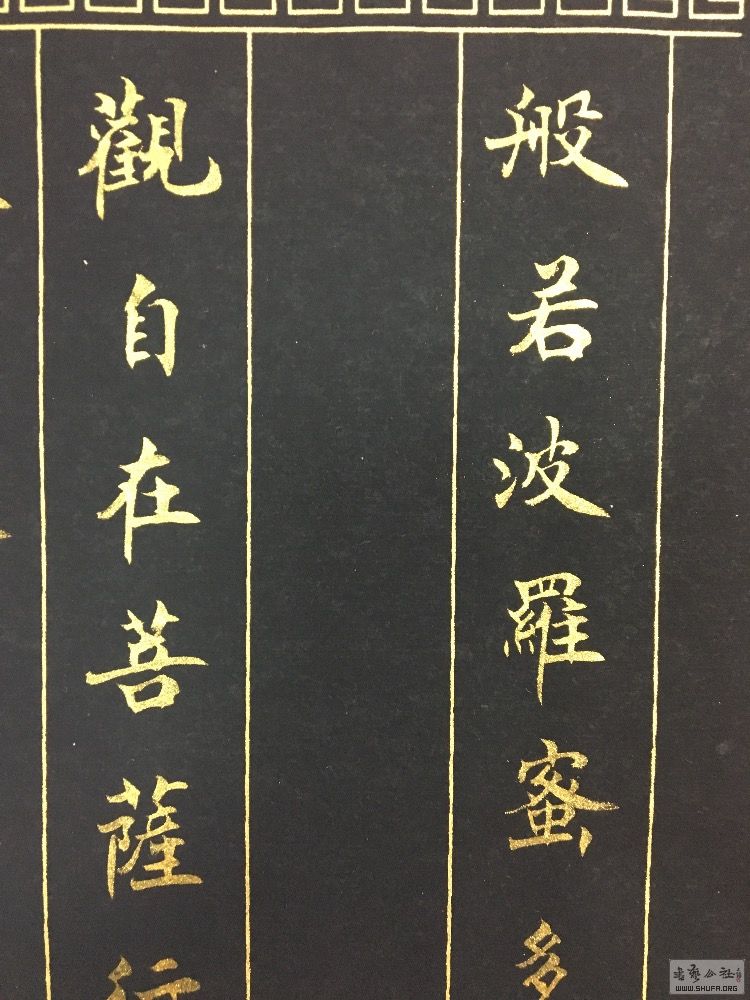 般若波羅蜜多
觀自在菩薩行
WWW.SHUFA.ORG